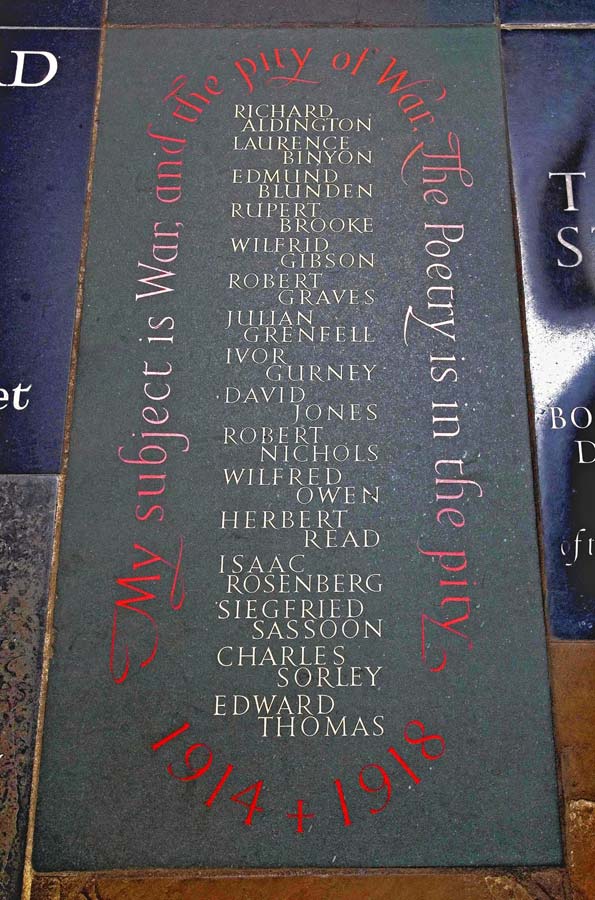 My subject is War, and the pity of War. The Poetry is in the pity.
RICHARD
ALDINGTON
LAURENCE
BINYON
EDMUND
BLUNDEN
RUPERT
BROOKE
WILFRID
GIBSON
ROBERT
GRAVES
JULIAN
GRENFELL
IVOR
GURNEY
DAVID
JONES
ROBERT
NICHOLS
WILFRED
OWEN
HERBERT
READ
ISAAC
ROSENBERG
SIEGFRIED
SASSOON
CHARLES
SORLEY
EDWARD
THOMAS
1914 + 1918